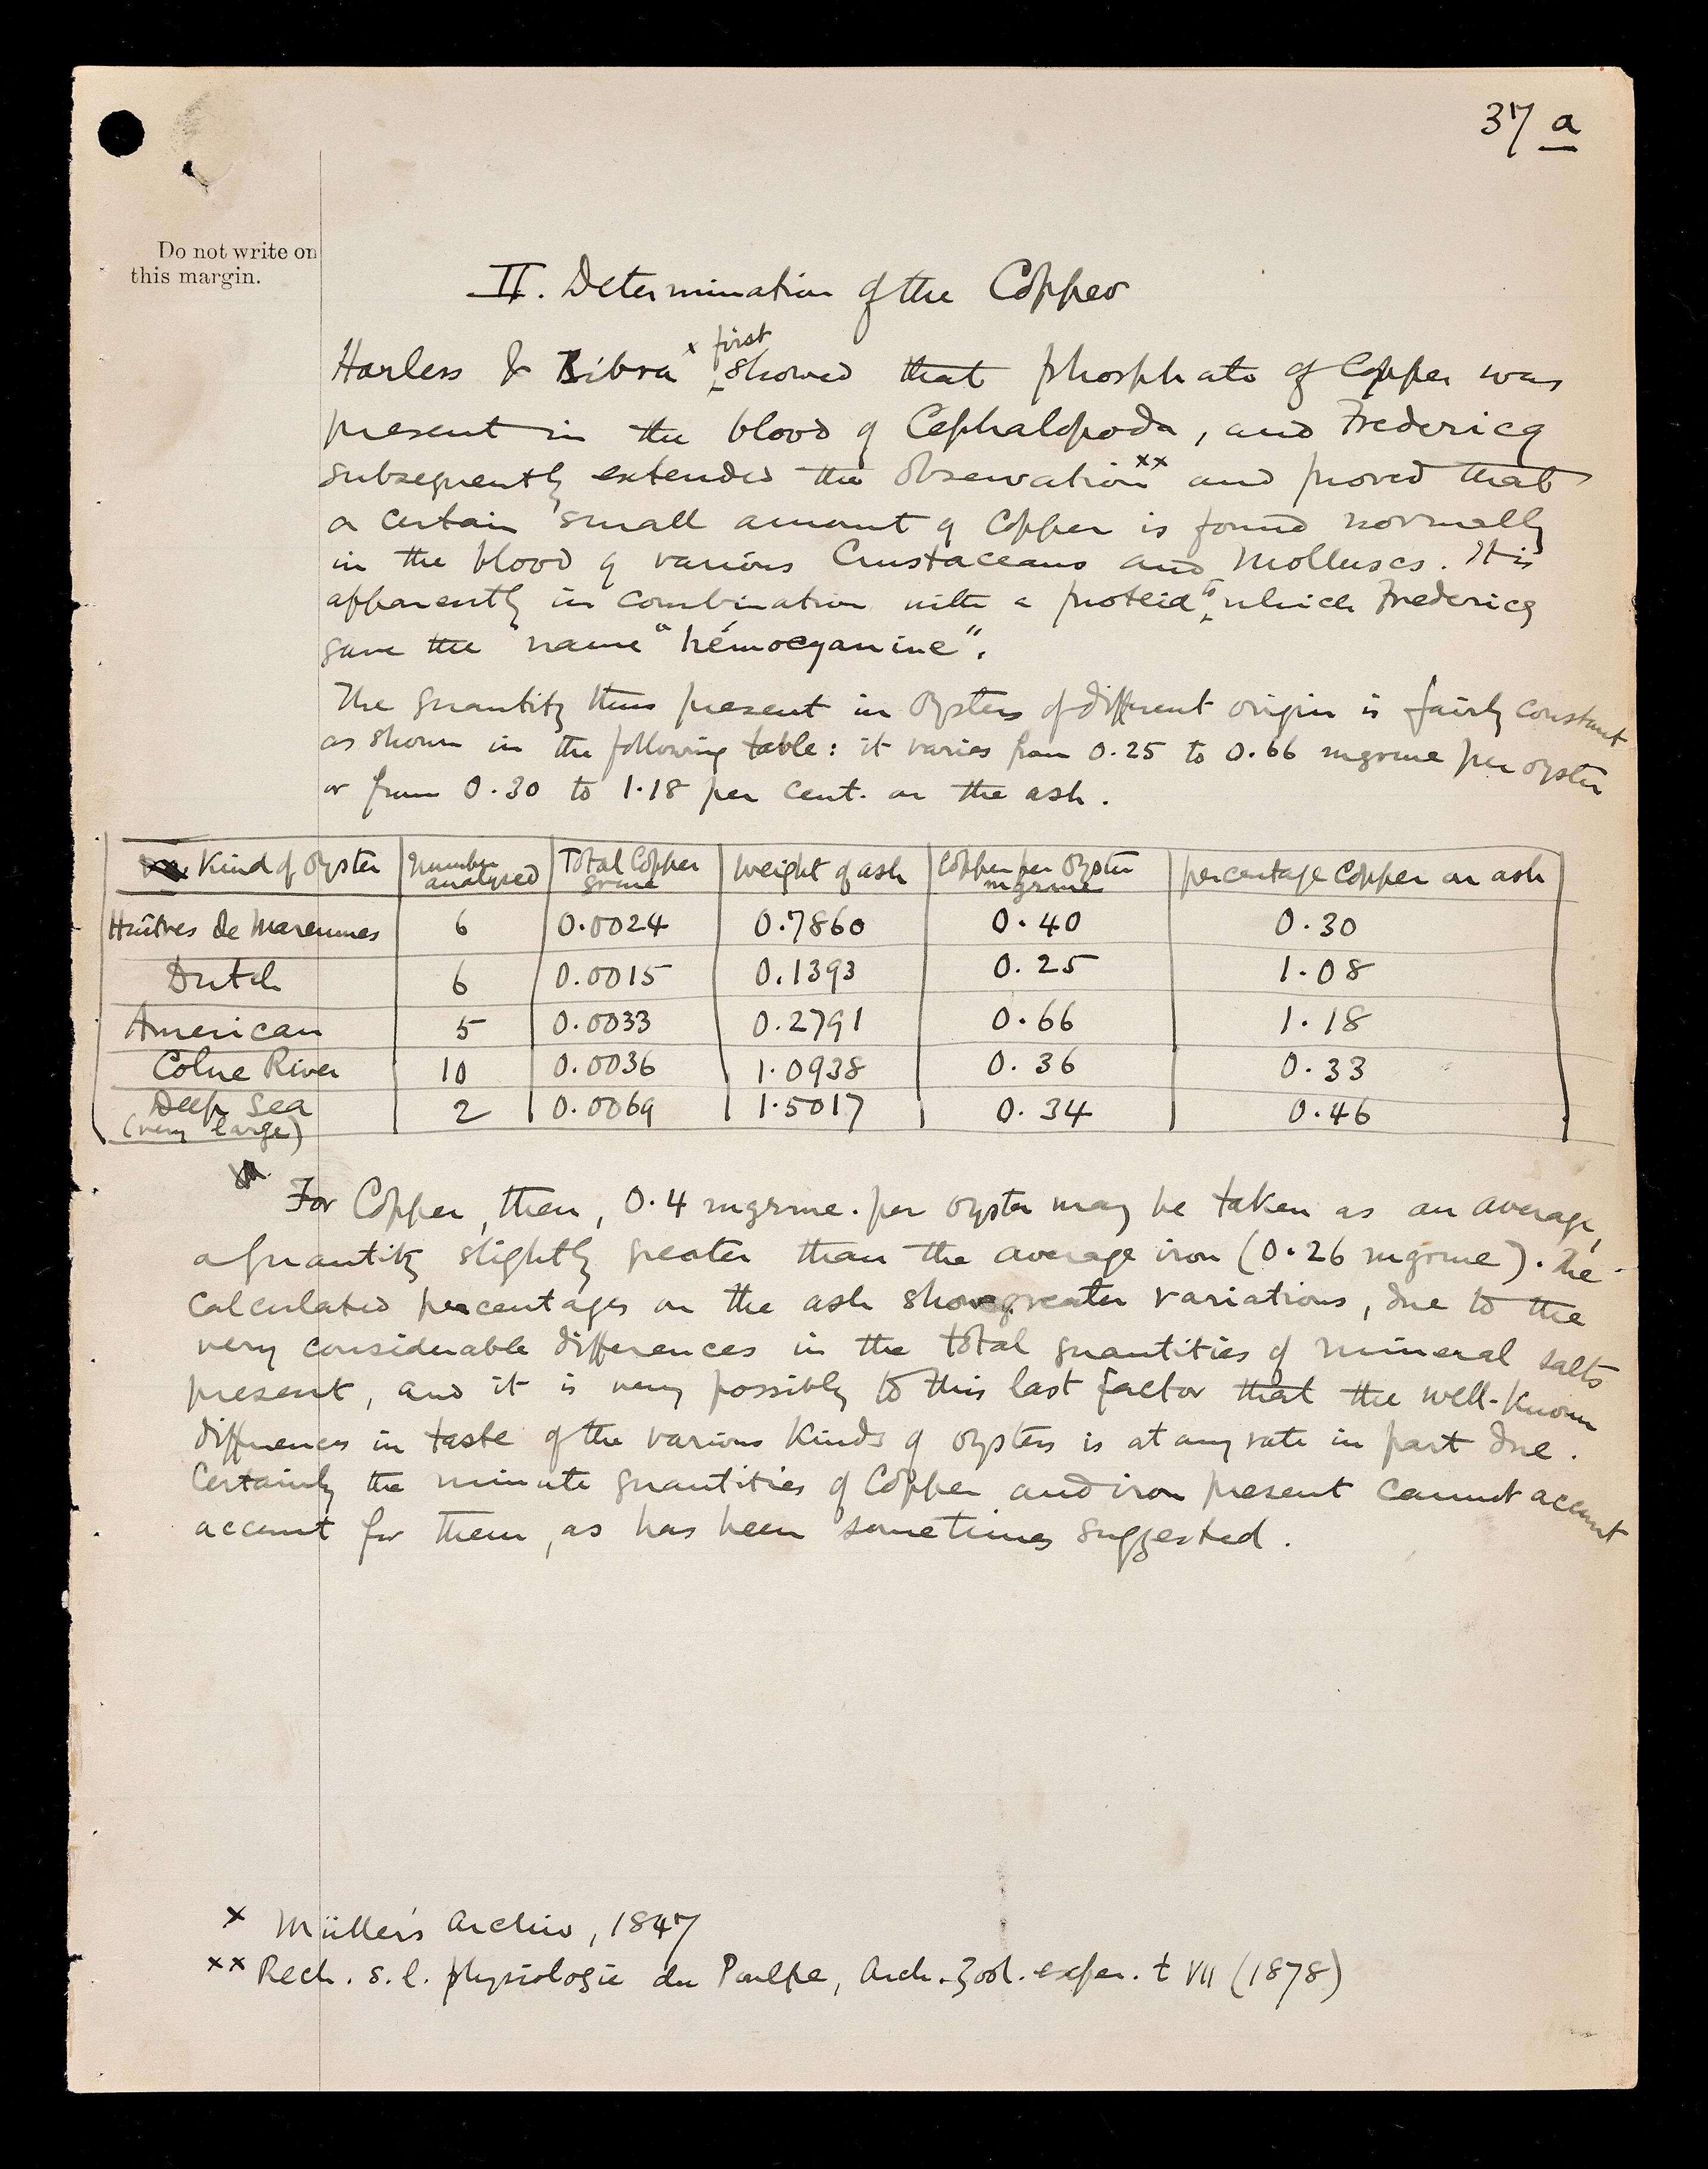 37 a
Do not write on
this margin.
II. Determination of the Copper
Harless & Bibra x first showed that phosphate of Copper was
present in the blood of Cephalopoda, and Fredericq
subsequently extended the observation xx and proved that
a certain small amount of Copper is found normally
in the blood of various Crustaceans and Molluscs. It is
apparently in combination with a proteid to which Fredericq
gave the name "hémocyanine".
The quantity thus present in oysters of different origin is fairly constant
as shown in the following table: it varies from 0.25 to 0.66 mgrme per oyster
or from 0.30 to 1.18 per cent. on the ash.
Kind of Oyster | Number analysed | Total Copper grme | Weight of ash | Copper per Oyster mgrme | percentage Copper on ash
Huîtres de Marennes | 6 | 0.0024 | 0.7860 | 0.40 | 0.30
Dutch | 6 | 0.0015 | 0.1393 | 0.25 | 1.08
American | 5 | 0.0033 | 0.2791 | 0.66 | 1.18
Colne River | 10 | 0.0036 | 1.0938 | 0.36 | 0.33
Deep Sea (very large) | 2 | 0.0069 | 1.5017 | 0.34 | 0.46
For Copper, then, 0.4 mgrme. per oyster may be taken as an average,
a quantity slightly greater than the average iron (0.26 mgrme). The
calculated percentages on the ash show greater variations, due to the
very considerable differences in the total quantities of mineral salts
present, and it is very possibly to this last factor that the well-known
differences in taste of the various kinds of oysters is at any rate in part due.
Certainly the minute quantities of Copper and iron present cannot account
account for them, as has been sometimes suggested.
x Müller's Archiv, 1847
xx Rech. s. l. physiologie du Poulpe, Arch. Zool. exper. t VII (1878)